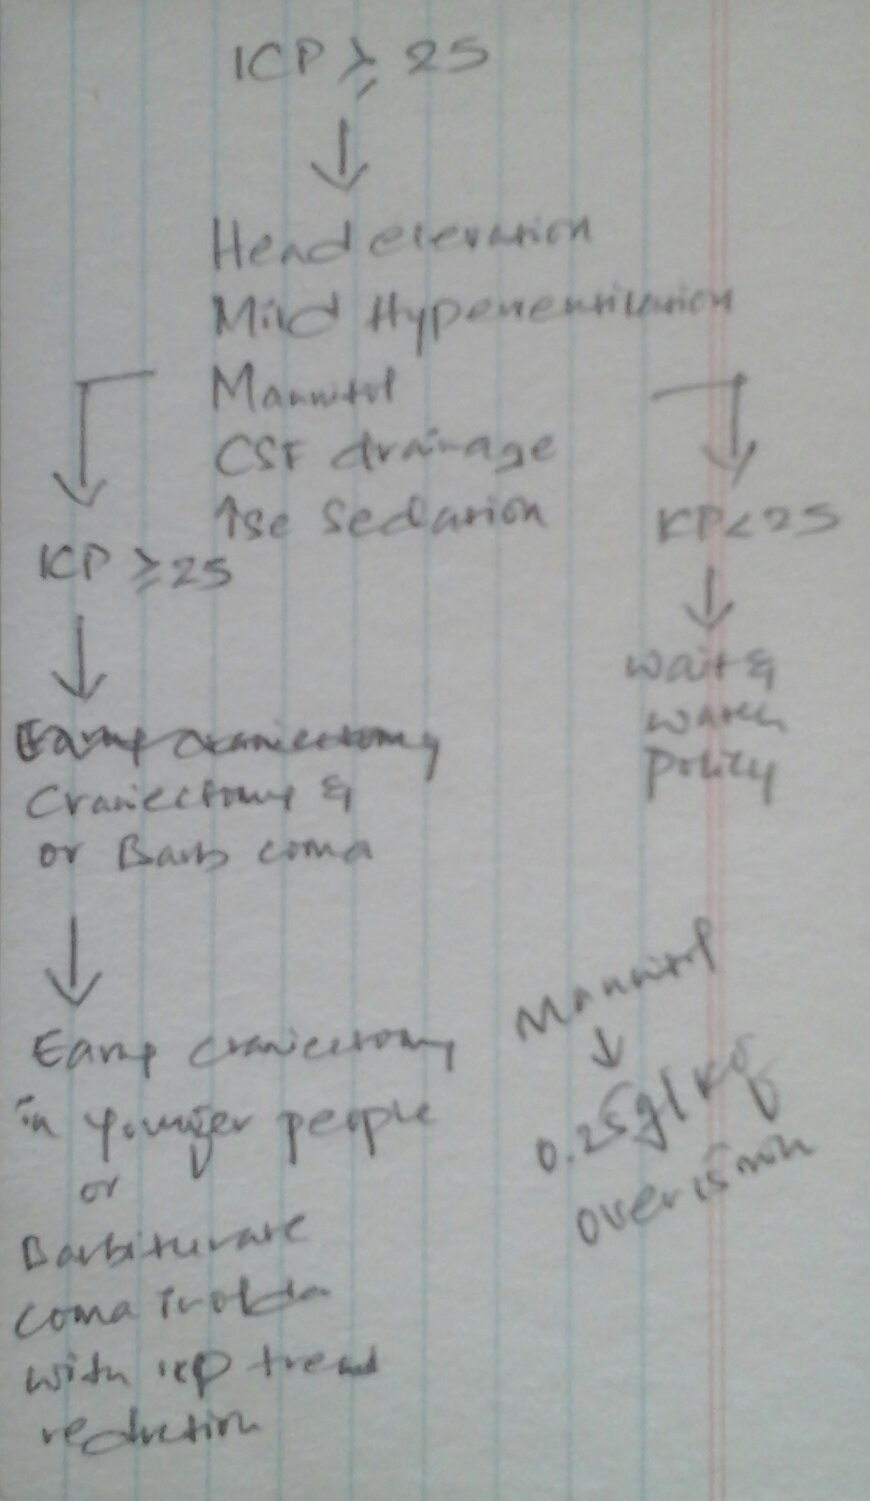 ICP ≥ 25
↓
Head elevation
Mild Hyperventilation
Mannitol
CSF drainage
↑se Sedation
ICP ≥ 25
↓
Craniectomy &
or Barb coma
↓
Early craniectomy
in younger people
or
Barbiturate
coma in older
with ICP trend
reduction
ICP < 25
↓
Wait &
watch
policy
Mannitol
↓
0.25g/kg
over 15 min